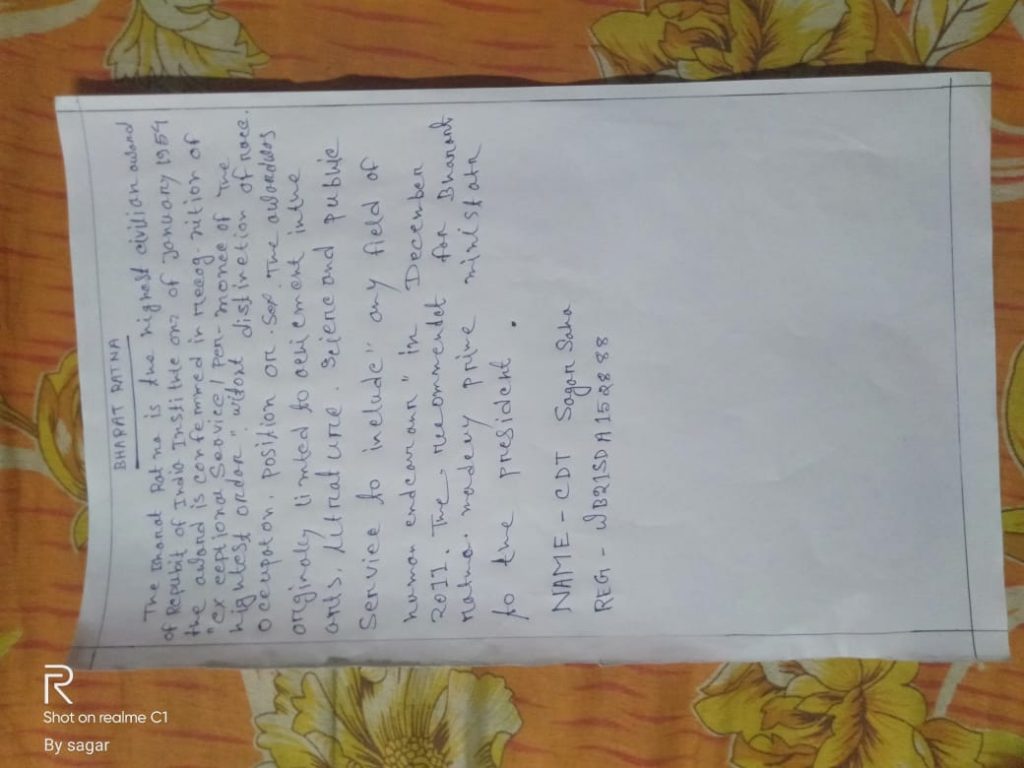 BHARAT RATNA
The Bharat Ratna is the highest civilian award
of Republit of India Institute on 2 of January 1954
the award is conferred in recog-nition of
"Ex ceptional Service/Per-mance of the
highest order". witout distinction of race.
Occupation. Position or Sex. The awardes
originally limted to acheiment inthe
arts, litrature. Science and public
Service to include" any field of
human endeavour" in December
2011. The recommendet for Bharat
Ratna. madeey prime ministara
to the president.
NAME - CDT Sagar Saha
REG - WB21SDA152888
R
Shot on realme C1
By sagar